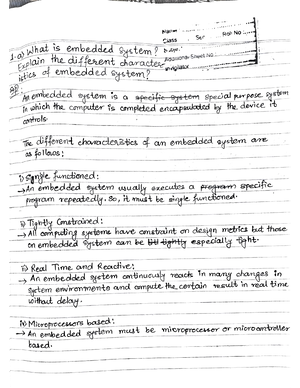 Name
Class Sec Roll No.
Additional Sheet No
Invigilator
1.a) What is embedded system?
Explain the different character-
istics of embedded system?
An embedded system is a specific system special purpose system
in which the computer is completed encapsulated by the device it
controls.
The different characteristics of an embedded system are
as follows:
i) Single functioned:
→ An embedded system usually executes a program specific
program repeatedly. So, it must be single functioned.
ii) Tightly Constrained:
→ All computing systems have constraint on design metrics but those
on embedded system can be especially tight.
iii) Real Time and Reactive:
→ An embedded system continuously reacts in many changes in
system environments and compute the certain result in real time
without delay.
iv) Microprocessors based:
→ An embedded system must be microprocessor or microcontroller
based.